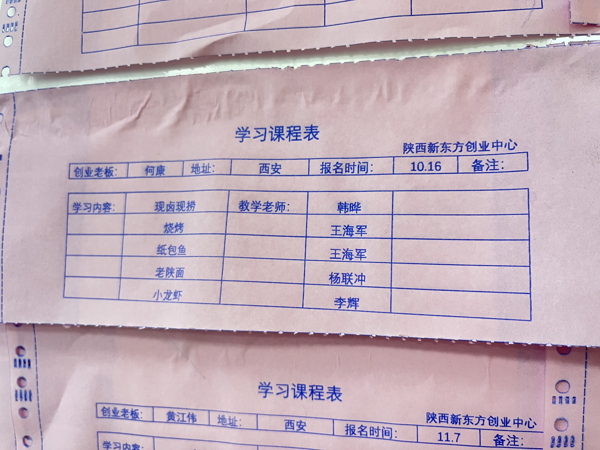 学习课程表
陕西新东方创业中心
创业老板： 何康 地址： 西安 报名时间： 10.16 备注：
学习内容： 现卤现捞 教学老师： 韩晔
烧烤 王海军
纸包鱼 王海军
老陕面 杨联冲
小龙虾 李辉
学习课程表
陕西新东方创业中心
创业老板： 黄江伟 地址： 西安 报名时间： 11.7 备注：
学习内容：